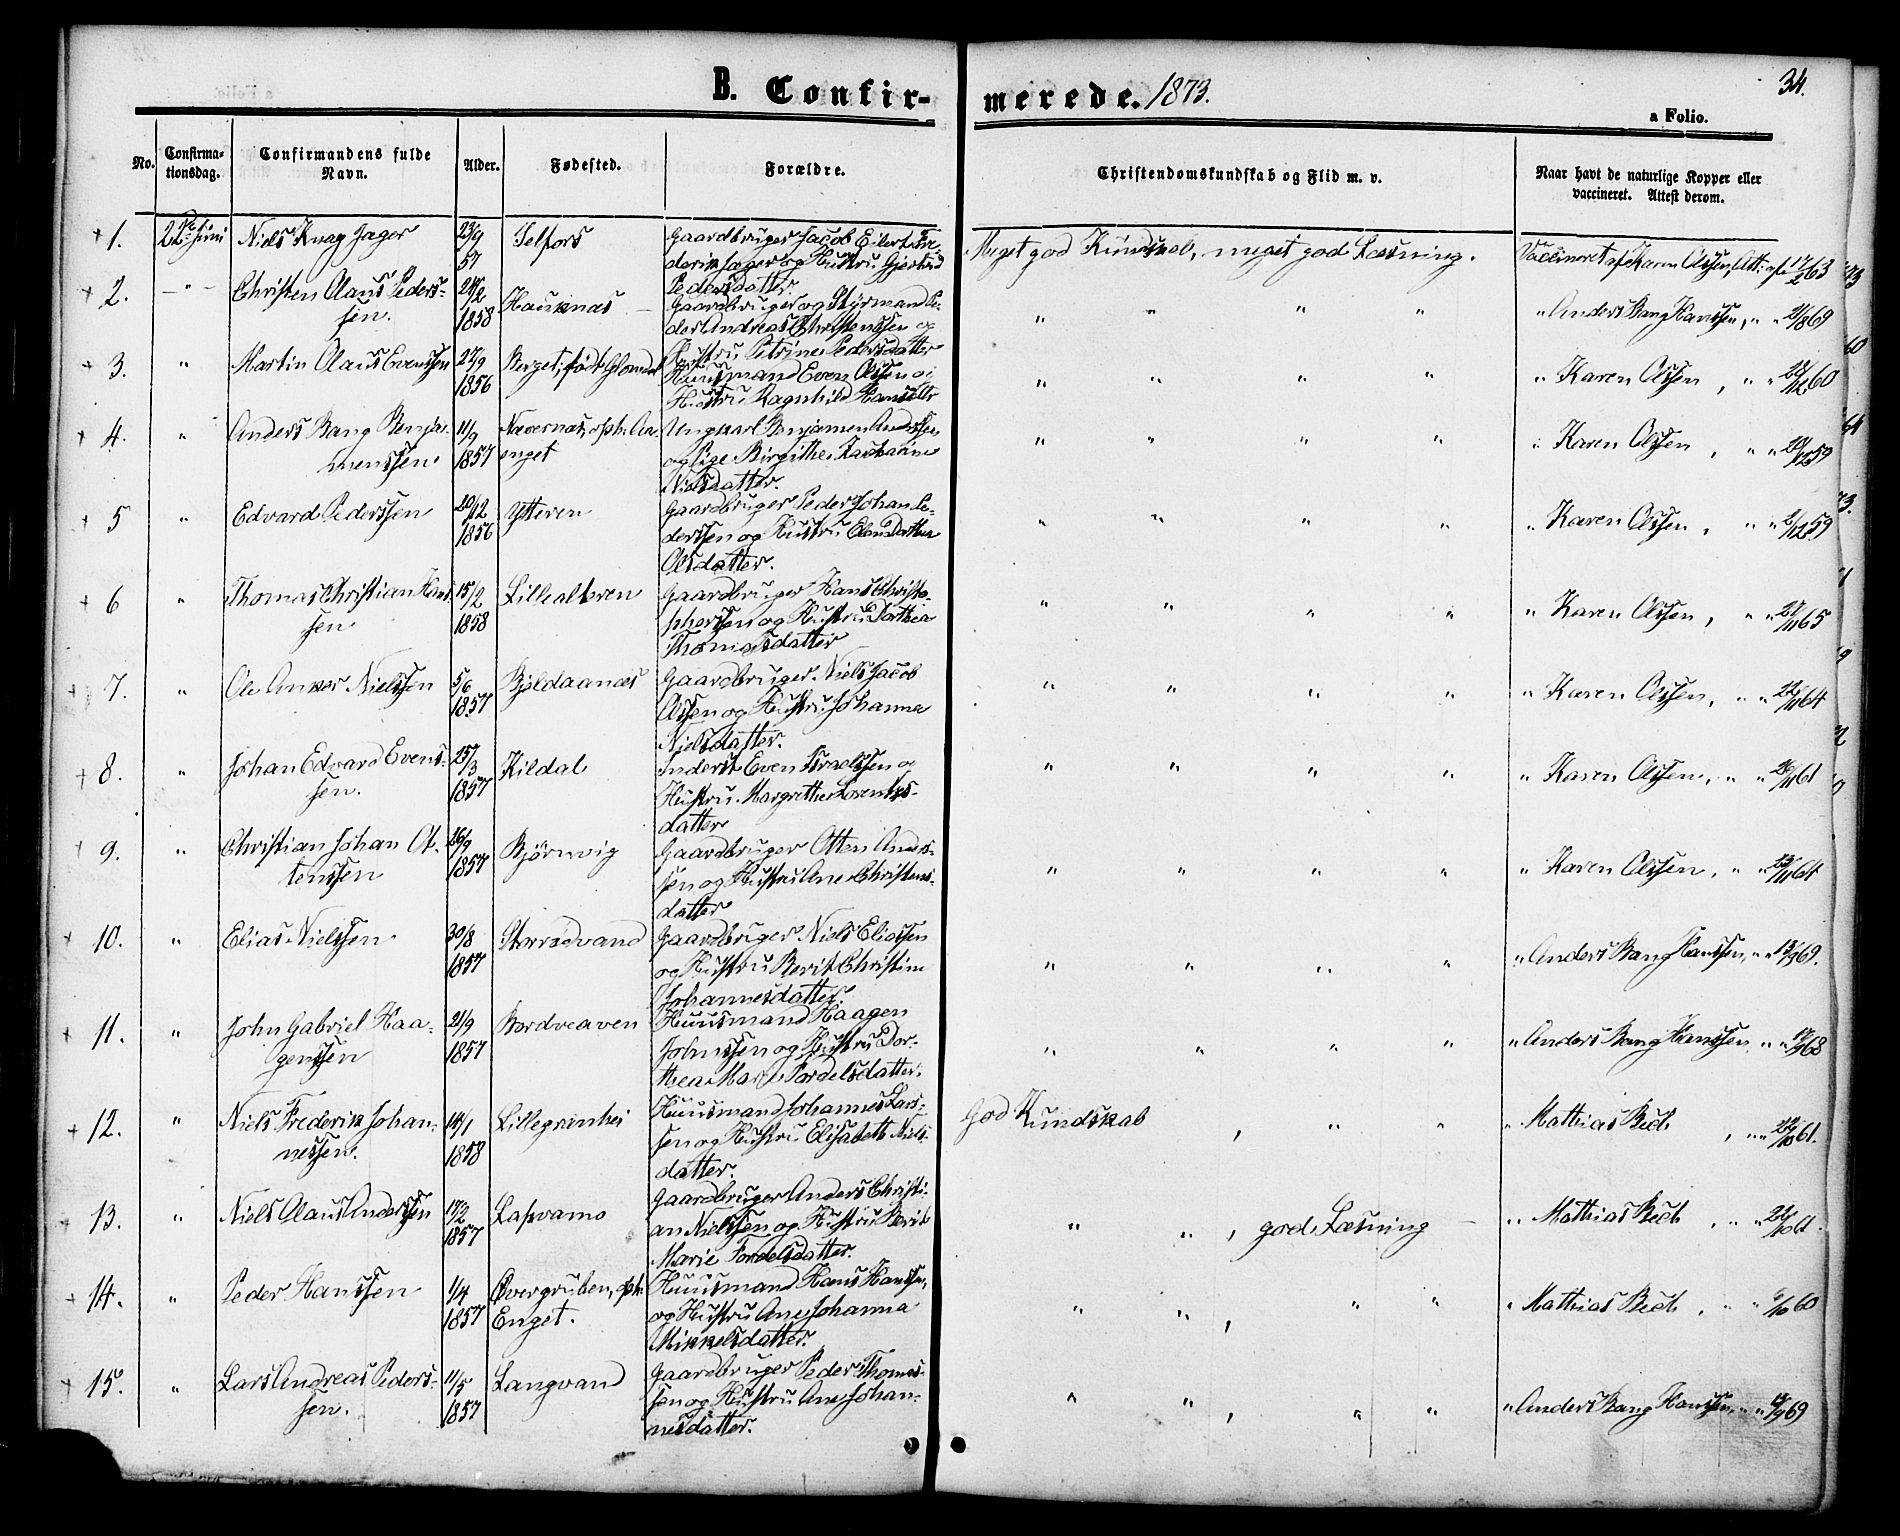 B. Confirmerede. 1873.
34.
a Folio.
No.
Confirmationsdag.
Confirmandens fulde Navn.
Alder.
Fødested.
Forældre.
Christendomskundskab og Flid m. v.
Naar havt de naturlige Kopper eller vaccineret. Attest derom.
1. 22de Juni Niels Knag Jager 23/9 57 Selfors
Gaardbruger Jacob Eilert Frederik Jager og Hustru Gjertrud Pedersdatter.
Meget god Kundskab, meget god Læsning.
Vaccineret af Karen Olssen, Att: af 17/2 63
2. — " — Christen Olaus Pederssen. 24/2 1858 Hauknæs
Gaardbruger og Styrmand Peder Andreas Christenssen og Hustru Petrine Pedersdatter
" " " "
" Anders Bang Hanssen, " " 2/8 69
3. " Martin Olaus Evenssen 27/9 1856 Berget, født
Huusmand Even Olssen og Hustru Ragnhild Hansdtr
" " " "
" Karen Olssen, " " 60
4. " Anders Bang Benjamenssen. 11/9 1857 Nævernæs, oph.
Ungkarl Benjamen Anderssen og Pige Birgithe Katharine Nielsdatter.
" " " "
" Karen Olssen, " " 59
5 " Edvard Pederssen 20/12 1856 Ytteren
Gaardbruger Peder Johan Pederssen og Hustru Elen Dorthea Olsdatter.
" " " "
" Karen Olssen, " " 2/12 59
6 " Thomas Christian Hanssen 15/2 1858 Lillealteren
Gaardbruger Hans Christophersen og Hustru Dorthea Thomasdatter
" " " "
" Karen Olssen, " " 27/11 65
7. " Ole Anker Nielssen 5/6 1857 Bjeldaanæs
Gaardbruger Niels Jacob Olssen og Hustru Johanna Nielsdatter.
" " " "
" Karen Olssen, " " 22/11 64
8. " Johan Edvard Evenssen. 25/3 1857 Kildal
Inderst Even Israelssen og Hustru Margrethe Lorentsdatter
" " " "
" Karen Olssen, " " 26/11 61
9. " Christian Johan Ottenssen 26/9 1857 Bjørnvig
Gaardbruger Otten Anderssen og Hustru Ane Christensdatter
" " " "
" Karen Olssen, " " 23/11 64
10. " Elias Nielssen 30/8 1857 Storrødvand
Gaardbruger Niels Eliassen og Hustru Berit Christine Johannesdatter.
" " " "
" Anders Bang Hanssen, " " 13/9 69.
11. " John Gabriel Haagenssen 21/9 1857 Bordveaven
Huusmand Haagen Johnssen og Hustru Dorthea Marie Tordelsdatter.
" " " "
" Anders Bang Hanssen, " " 68
12. " Niels Frederik Johannessen. 14/1 1858 Lillegrønhei
Huusmand Johannes Larssen og Hustru Elisabeth Nielsdatter.
God Kundskab, " "
" Mathias Bech, " " 22/10 61.
13. " Niels Olaus Anderssen 17/2 1857 Laspvamo
Gaardbruger Anders Christian Nielssen og Hustru Berit Marie Tordelsdatter.
" " , god Læsning —
" Mathias Bech, " " 22/10 61.
14. " Peder Hanssen 1/4 1857 Øvergruben, oph. Enget.
Huusmand Hans Hanssen, og Hustru Ane Johanna Mikkelsdatter.
" " , " "
" Mathias Bech, " " 60
15. " Lars Andreas Pederssen. 11/5 1857 Langvand
Gaardbruger Peder Thomassen og Hustru Ane Johannesdatter.
" " , " "
" Anders Bang Hanssen, " " 69